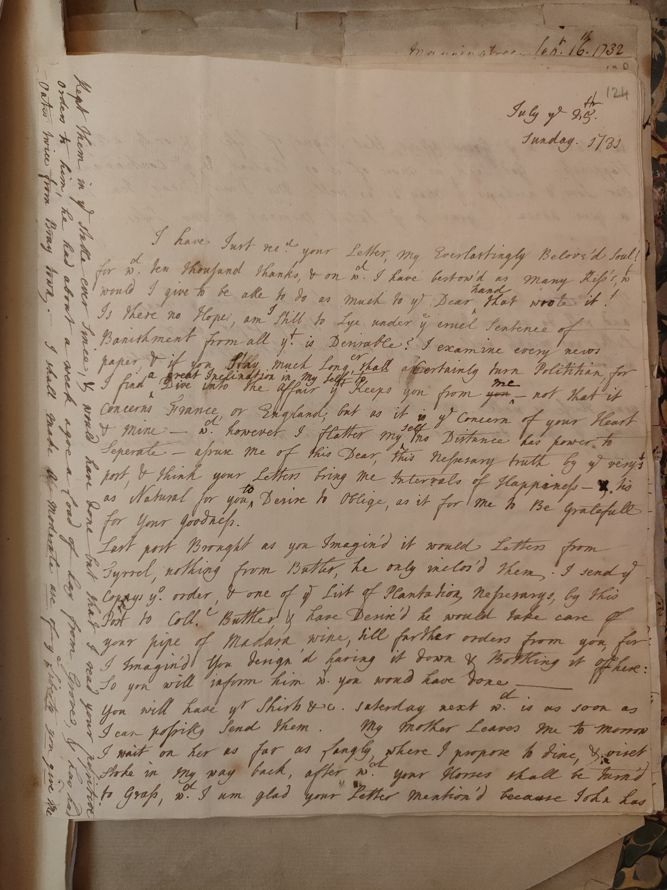 Sepr. 16. 1732
124
July ye 8th.
Sunday. 1731
I have Just recd your Letter, my Everlastingly Belov'd Soul!
for wch. ten thousand thanks, & on wch. I have bestow'd as many Kisses, wt
would I give to be able to do as much to ye Dear hand that wrote it!
Is there no Hope, am I Still to Lye under ye cruel Sentence of
Banishment from all yt. is Desirable? I examine every news
paper & if you Stay much Longer shall Certainly turn Polititian for
I find a great Inclination in my self to Dive into the Affair yt Keeps you from me – not that it
Concerns France, or England, but as it is ye Concern of your Heart
& Mine – wch. however I flatter my self no Distance has power to
Seperate – assure me of this Dear, this Nessesary truth by ye very
post, & think your Letters bring me Intervals of Happiness – tis
as Natural for you to Desire to Oblige, as it for me to Be Gratefull
for Your Goodness.
Last post Brought as you Imagin'd it would Letters from
Tyrrel, nothing from Butler, he only inclos'd them. I send ye
Copy of yr. order, & one of ye List of Plantation Nessesarys, by this
Post to Coll. Butler, & have Desir'd he would take care of
your pipe of Madara wine, till further orders from you, for
I Imagin'd You design'd having it down & Bottling it here:
So you will inform him wt. you would have done
You will have yr Shirts &c. saterday next wch. is as soon as
I can possible Send them. My Mother Leaves Me to morrow
I wait on her as far as Langly, where I propose to dine, & viset
Stoke in my way back, after wch. your Horses shall be turn'd
to Grass, wch. I am glad your Letter mention'd because John has
Kept them in ye Stable ever since, & would have done but that I read your positive
orders to him, he had about a week agoe a Load of Hay from
Oates twice from Bray town. I shall make ye Moderate use of ye Liberty you give Me